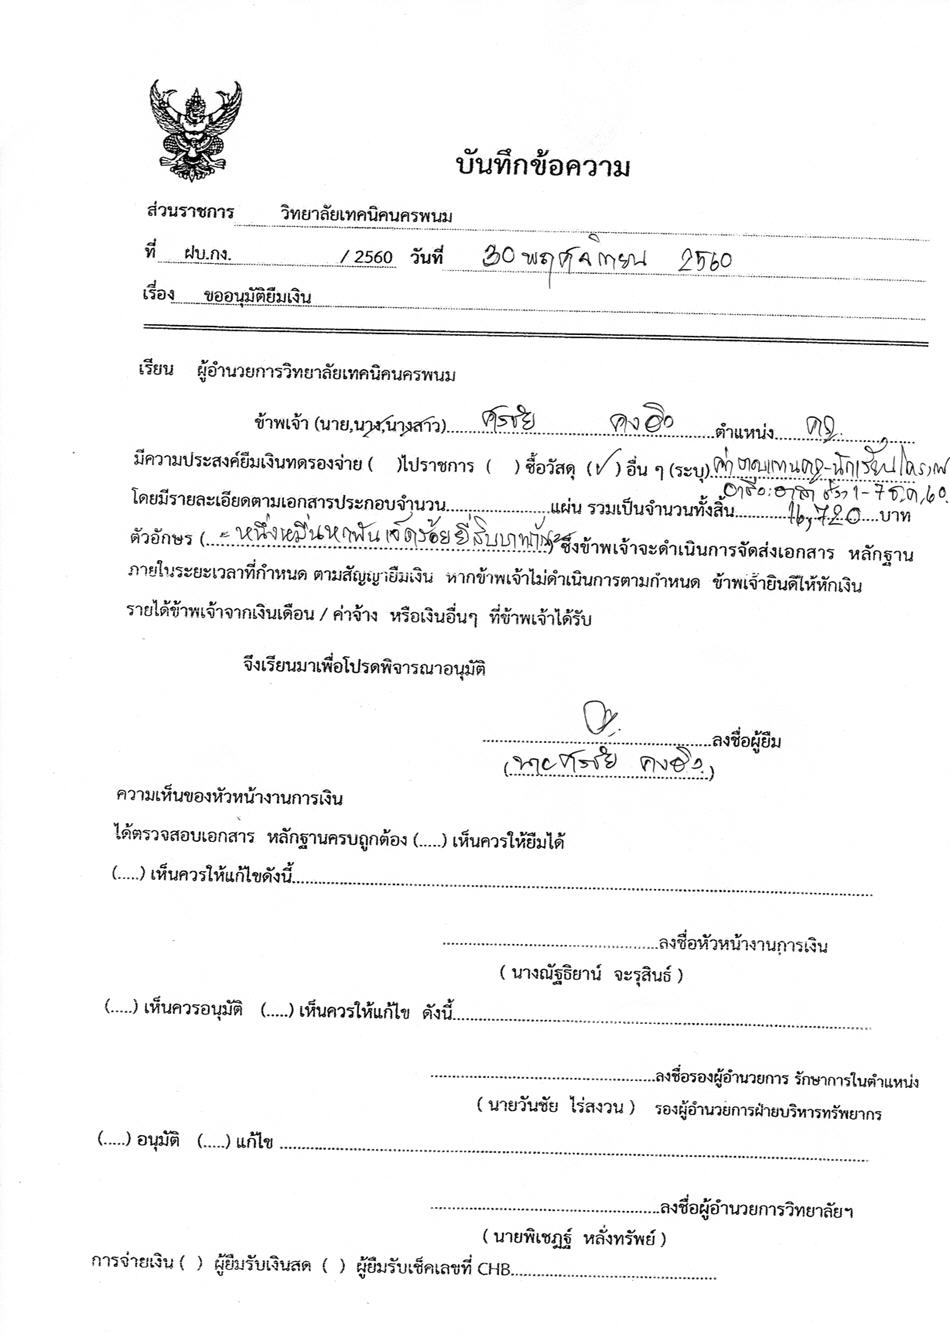 บันทึกข้อความ
ส่วนราชการ วิทยาลัยเทคนิคนครพนม
ที่ ฝบ.กง. / 2560 วันที่ 30 พฤศจิกายน 2560
เรื่อง ขออนุมัติยืมเงิน
เรียน ผู้อำนวยการวิทยาลัยเทคนิคนครพนม
ข้าพเจ้า (นาย,นาง,นางสาว) ศรชัย คงฮิง ตำแหน่ง ครู
มีความประสงค์ยืมเงินทดรองจ่าย ( )ไปราชการ ( ) ซื้อวัสดุ (✓) อื่น ๆ (ระบุ) ค่าตอบแทนครู-นักเรียน
อาชีวะอาสา 1-7 ธ.ค. 60
โดยมีรายละเอียดตามเอกสารประกอบจำนวน..........แผ่น รวมเป็นจำนวนทั้งสิ้น 16,720 บาท
ตัวอักษร (= หนึ่งหมื่นหกพันเจ็ดร้อยยี่สิบบาทถ้วน =) ซึ่งข้าพเจ้าจะดำเนินการจัดส่งเอกสาร หลักฐาน
ภายในระยะเวลาที่กำหนด ตามสัญญายืมเงิน หากข้าพเจ้าไม่ดำเนินการตามกำหนด ข้าพเจ้ายินดีให้หักเงิน
รายได้ข้าพเจ้าจากเงินเดือน / ค่าจ้าง หรือเงินอื่นๆ ที่ข้าพเจ้าได้รับ
จึงเรียนมาเพื่อโปรดพิจารณาอนุมัติ
ลงชื่อผู้ยืม
(นายศรชัย คงฮิง)
ความเห็นของหัวหน้างานการเงิน
ได้ตรวจสอบเอกสาร หลักฐานครบถูกต้อง (.....) เห็นควรให้ยืมได้
(.....) เห็นควรให้แก้ไขดังนี้
ลงชื่อหัวหน้างานการเงิน
( นางณัฐธิยาน์ จะรุสินธ์ )
(.....) เห็นควรอนุมัติ (.....) เห็นควรให้แก้ไข ดังนี้
ลงชื่อรองผู้อำนวยการ รักษาการในตำแหน่ง
( นายวันชัย ไร่สงวน ) รองผู้อำนวยการฝ่ายบริหารทรัพยากร
(.....) อนุมัติ (.....) แก้ไข
ลงชื่อผู้อำนวยการวิทยาลัยฯ
( นายพิเชฏฐ์ หลั่งทรัพย์ )
การจ่ายเงิน ( ) ผู้ยืมรับเงินสด ( ) ผู้ยืมรับเช็คเลขที่ CHB